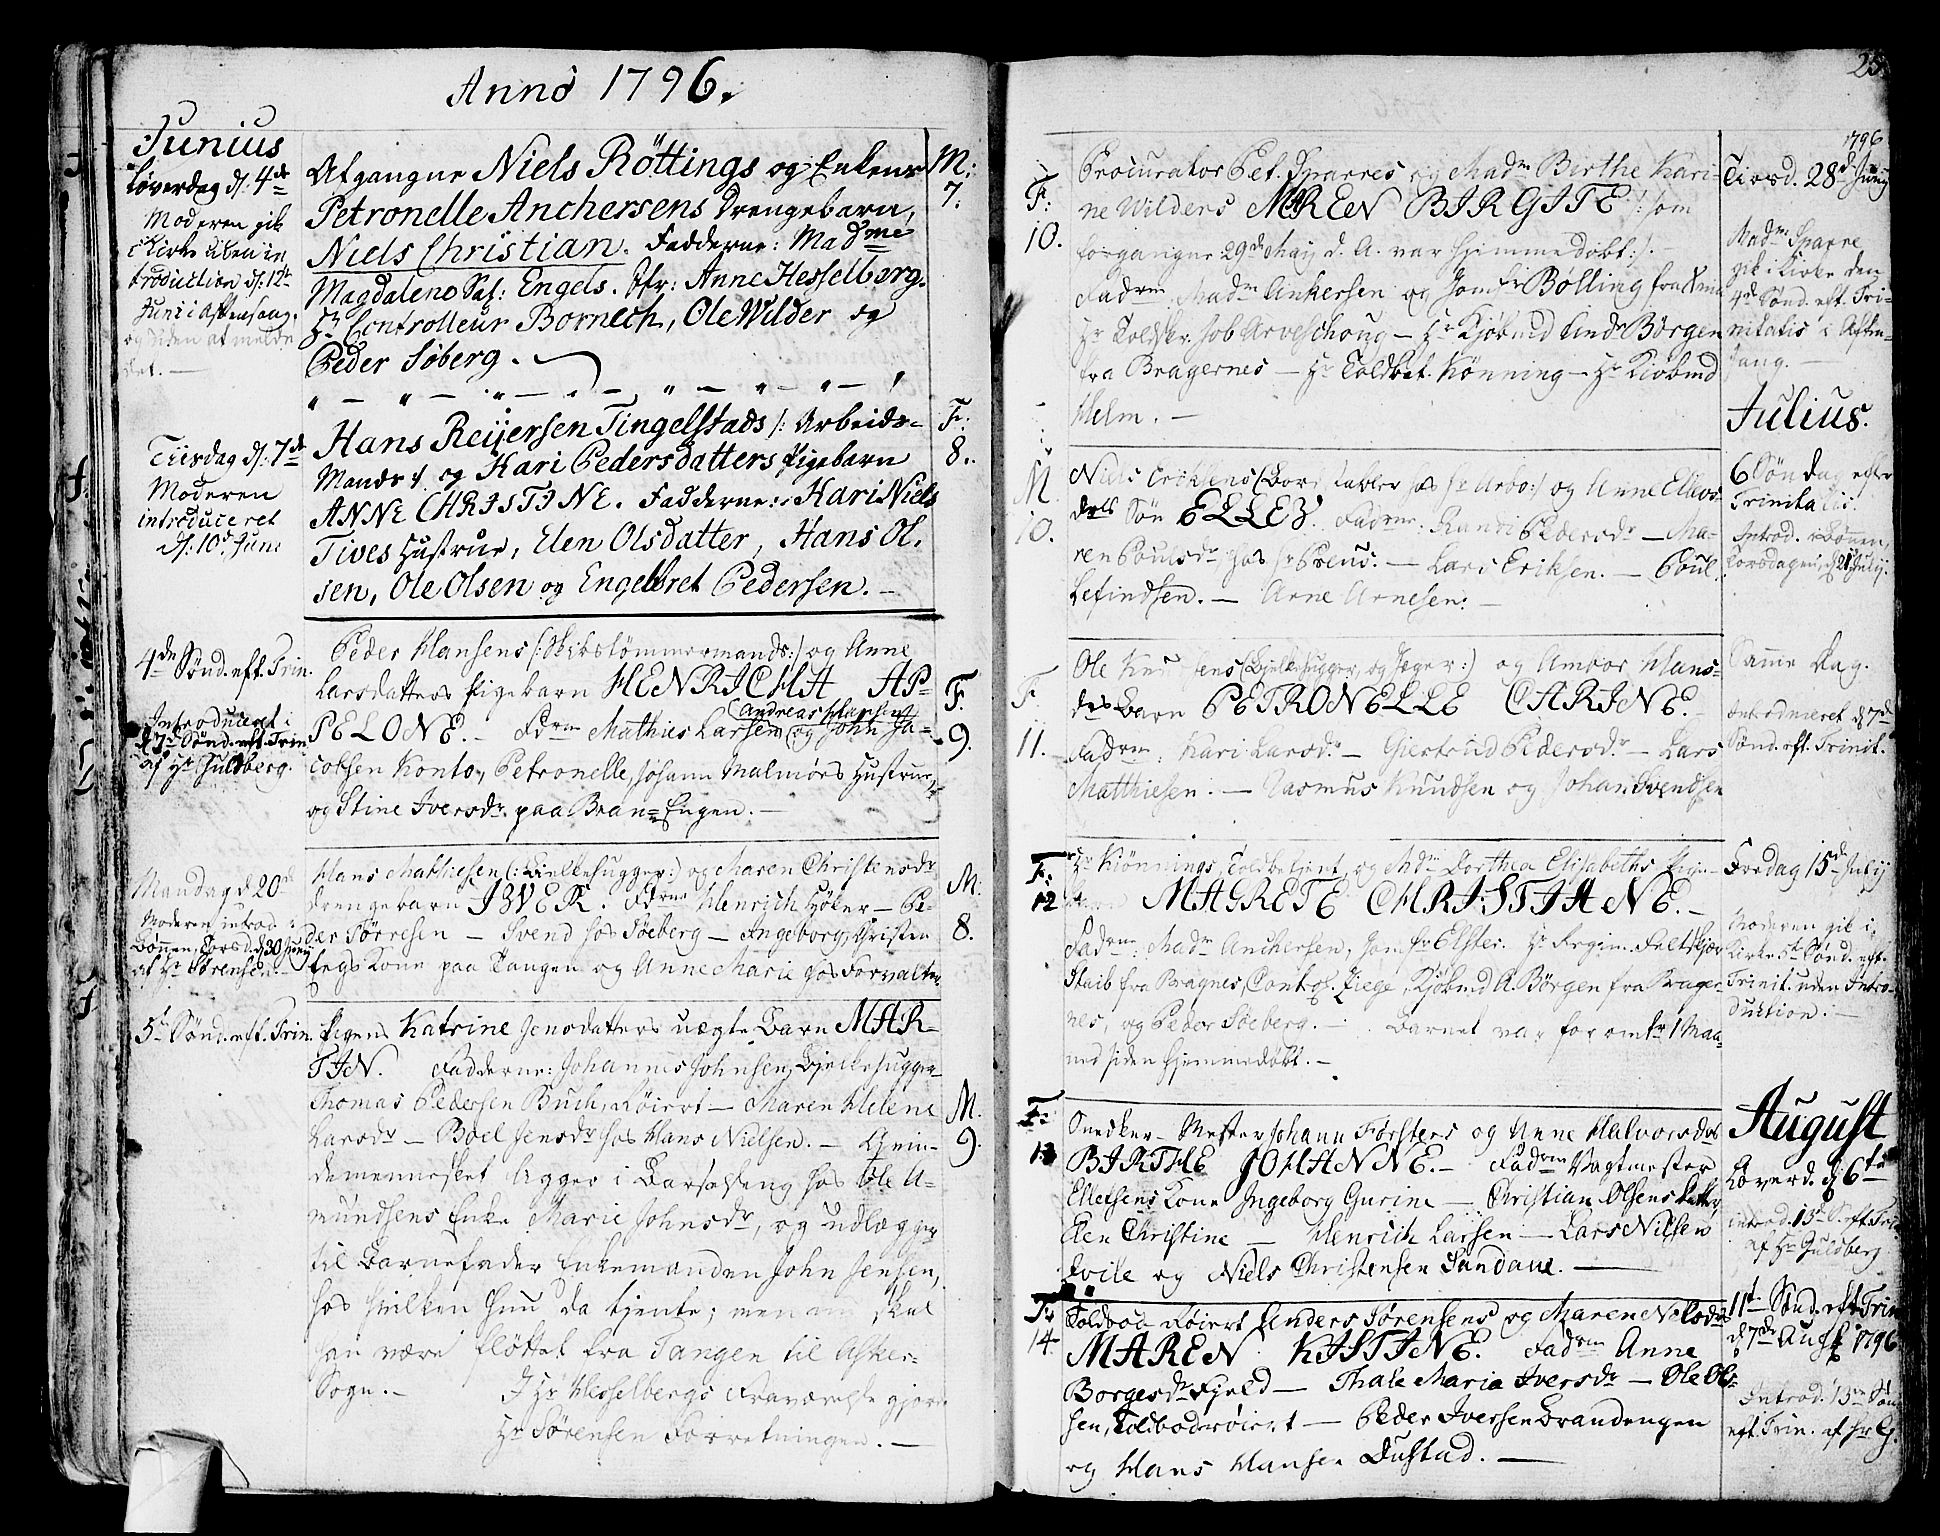 Anno 1796.
Junius
Løverdag d: 4de
Moderen gik
i Kirke uden in
troduction d: 12te
Juni i Aftensang,
og uden at melde
det. —
Afgangne Niels Röttings og Enkens
Petronelle Anchersens Drengebarn,
Niels Christian. Fadderne: Madme
Magdalene Sal: Engels. Jfr: Anne Hesselberg.
Hr Controlleur Bornech, Ole Wilder og
Peder Søberg. —
M:
7.
Tiirsdag d: 7de
Moderen
introduceret
d: 10de Juni
Hans Reijersen Tingelstads /: Arbeids-
Mands :/ og Kari Pedersdatters Pigebarn
ANNE CHRISTINE. Fadderne: Kari Niels
Tives Hustrue, Elen Olsdatter, Hans Ol,
sen, Ole Olsen og Engebret Pedersen. —
F:
8.
4de Sønd. eft. Trin.
Introduceret i
d 7de Sønd. eft. Trin
af Hr Guldberg.
Peder Hansens (: Skibstømmermands :) og Anne
Larsdatters Pigebarn HENRICHA AP-
(Andreas Hansen
PELONE. — Fdrne Mathies Larsen (og John Ja-
cobsen Konto, Petronelle, Johann Malmørs Hustrue,
og Stine Iversdr. paa Bran-Engen. —
F.
9.
Mandag d 20de
Moderen introd. i
Bønnen, Torsd. d 30 Junij
af Hr Sørensen. —
Hans Mathiesen (: Bielkehugger :) og Maren Christensdr
Drengebarn IVER. Fdrne Henrich Høker — Pe-
der Sørresen — Svend hos Søeberg — Ingeborg, Christen
Engs Kone paa Tangen og Anne Marie hos Forvalter
M:
8.
5te Sønd. eft. Trin.
Pigens Katrine Jensdatters uægte Barn MAR-
TIN. Fadderne: Johannes Johnsen, Bjelkehugger
Thomas Pedersen Buch, Røiert — Maren Helene
Larsdr — Boel Jensdr hos Hans Nielsen. — Qvin-
demennesket ligger i Barselseng hos Ole A-
mundsens Enke Marie Johnsdr, og udlægger
til Barnefader Enkemanden John Jensen,
hos hvilken hun da tjente; men nu skal
han være fløttet fra Tangen til Asker-
Sogn. — I Hr Hesselbergs Fraværelse gjorde
Hr Sørensen Forretningen. —
M.
9.
25
1796
F:
10.
Procurator Pet. Sparres og Madm Birthe Kari-
ne Wilders MAREN BIRGITE /: som
forgangne 29de Maij d. A. var hjemmedøbt :/ —
Fadrne Madm Ankersen og Jomfr Bølling fra
Hr Toldskr. Job Arveschoug — Hr Kjøbmd Andr Børgen
fra Bragernes — Hr Toldbet. Kønning — Hr Kiøbmd
Helm. —
Tirsd. 28de Junij
Madm Sparre
gik i Kirke den
4de Sønd. eft. Tri-
nitatis i Aften-
sang. —
Julius.
M
10.
Niels Eriksens (Bord hos Hr Arbo :) og Anne Ellevs
drs Søn ELLEV. Fadrne: Randi Pedersdr — Ma-
ren Poulsdr hos Hr Preus: — Lars Eriksen. — Poul
Lefindsen. — Arne Arnesen: —
6 Søndag efter
Trinitatis.
Introd. i Bønnen,
Torsdagen, d 21 Julij.
F.
11.
Ole Knudsens (Bjelkehugger, og Jæger :) og Ambor Hans-
drs Barn PETRONELLE CARINE. —
Fadrne: Kari Larsdr — Giertrud Pedersdr — Lars
Matthiesen. — Rasmus Knudsen og Johan Svendsen
Samme Dag.
Introduceret d 7de
Sønd. eft. Trinit.
F:
12
Hr Kiønnings, Toldbetjent, og Mdm Dorthea Elisabeths Pige-
MAGRETE CHRISTIANE. —
Fadrne: Madm Anchersen, Jomfr Elster. Hr Regim. Feltskjær
Staib fra Bragnes, Control. Ziege, Kjøbmd A. Børgen fra Brager-
nes, og Peder Søeberg. — Barnet var for omtr 1 Maa-
ned siden hjemmedøbt. —
Fredag 15de Julij
Moderen gik i
Kirke 5te Sønd. eft.
Trinit. uden Intro-
duktion. —
F:
13
Snedker-Mester Johann Førsters og Anne Halvorsdrs
BIRTHE JOHANNE. — Fadrne Vagtmester
Ellefsens Kone Ingeborg Gurine — Christian Olsens Datter
Elen Christine — Henrich Larsen — Lars Nilsen
Tvile og Niels Christensen Sundaue. —
August
Løverd. d 6te
introd. 13de S. eft. Tri
af Hr Guldberg
F:
14
Toldbod-Røiert Anders Sørensens og Maren Nilsdrs
MAREN KISTINE. Fadrne Anne
Borgesdr Fjeld — Thale Maria Iversdr — Ole Ol-
sen, Toldbodrøiert — Peder Iversen Brandengen
og Hans Hansen Dustad. —
11te Sønd. eft. Trin
d 7de Augst 1796
Introd. 13de Sønd
eft. Trin. af Hr G.